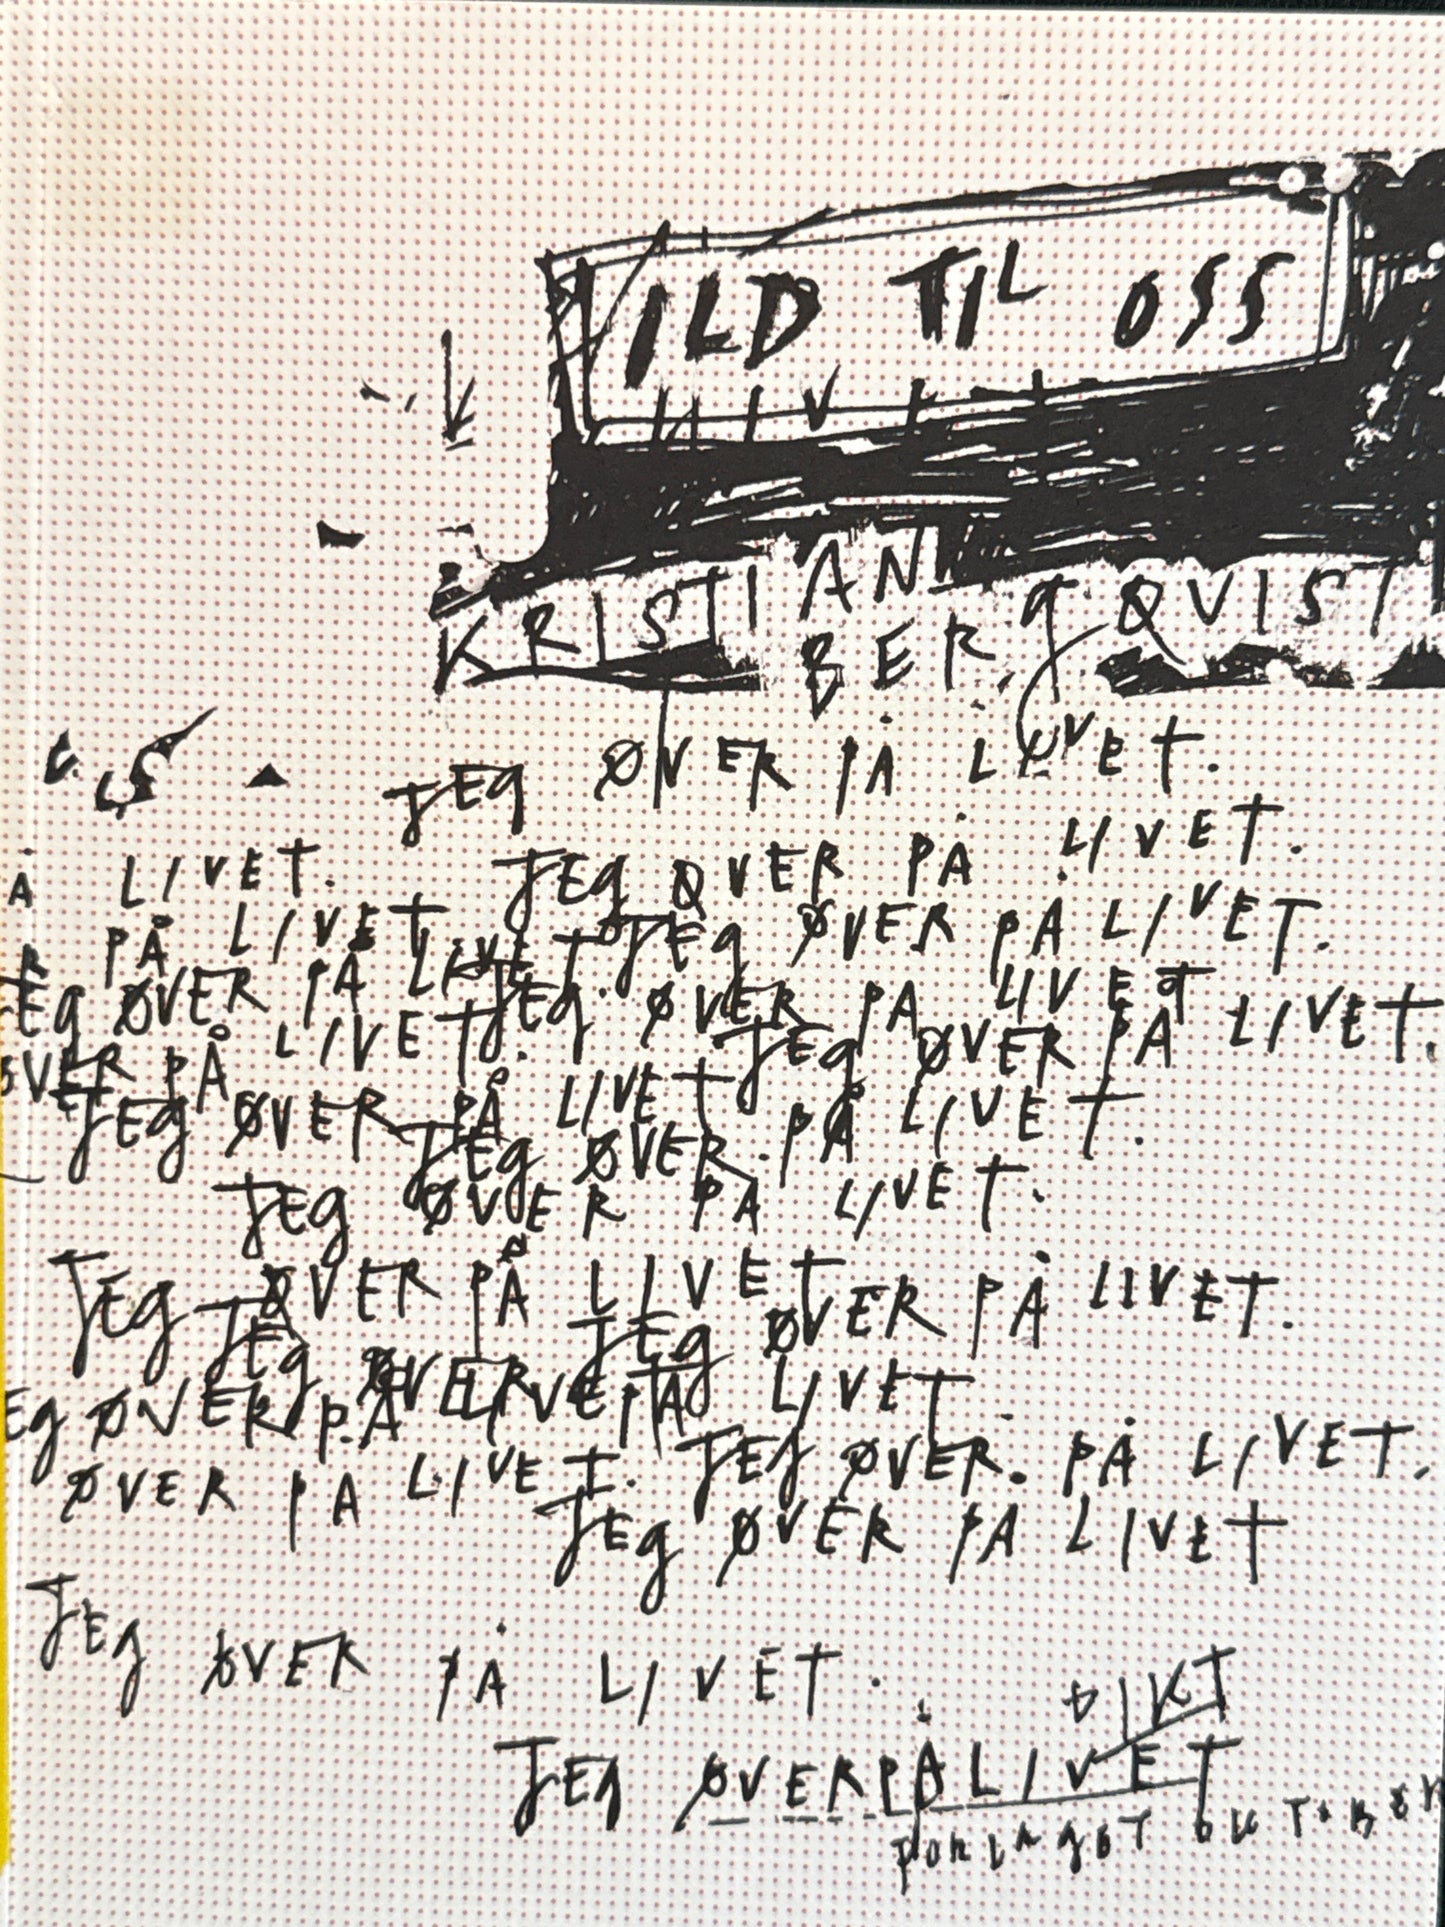 VILD TIL OSS
KRISTIAN
BERgQVIST
JEg ØVER PÅ LIVET.
Å LIVET. JEg ØVER PÅ LIVET.
R PÅ LIVET JEg ØVER PÅ LIVET.
JEg ØVER PÅ LIVET JEg ØVER PÅ LIVET
ØVER PÅ LIVET. JEg ØVER PÅ LIVET.
JEg ØVER PÅ LIVET
JEg ØVER PÅ LIVET.
JEg ØVER PÅ LIVET.
JEg ØVER PÅ LIVET
JEg ØVER PÅ LIVET.
JEg ØVER PÅ LIVET
Eg ØVER PÅ
ØVER PÅ LIVET. JEg ØVER PÅ LIVET.
JEg ØVER PÅ LIVET
JEg ØVER PÅ LIVET.
DIKT
JEg ØVER PÅ LIVET
FORLAgET OKTOBER